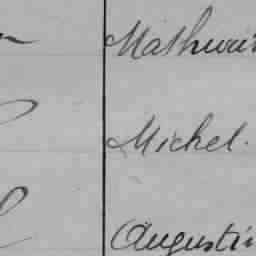 Mathurin
Michel.
Augustin